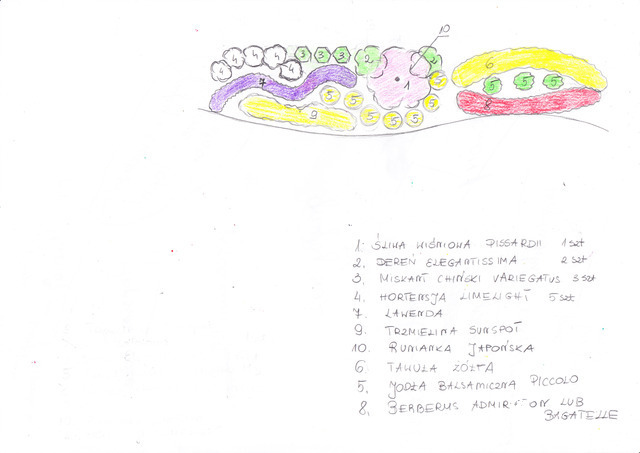 10
4 4 4 3 3 3 2 2
4 4 1 6
7 5 5 5 5 5 5
5 5 5 8
9 5 5 5
1. ŚLIWA WIŚNIOWA PISSARDII 1 szt
2. DEREŃ ELEGANTISSIMA 2 szt
3. MISKANT CHIŃSKI VARIEGATUS 3 szt
4. HORTENSJA LIMELIGHT 5 szt
7. LAWENDA
9. TRZMIELINA SUNSPOT
10. RUNIANKA JAPOŃSKA
6. TAWUŁA ŻÓŁTA
5. JODŁA BALSAMICZNA PICCOLO
8. BERBERYS ADMIRATION LUB
BAGATELLE